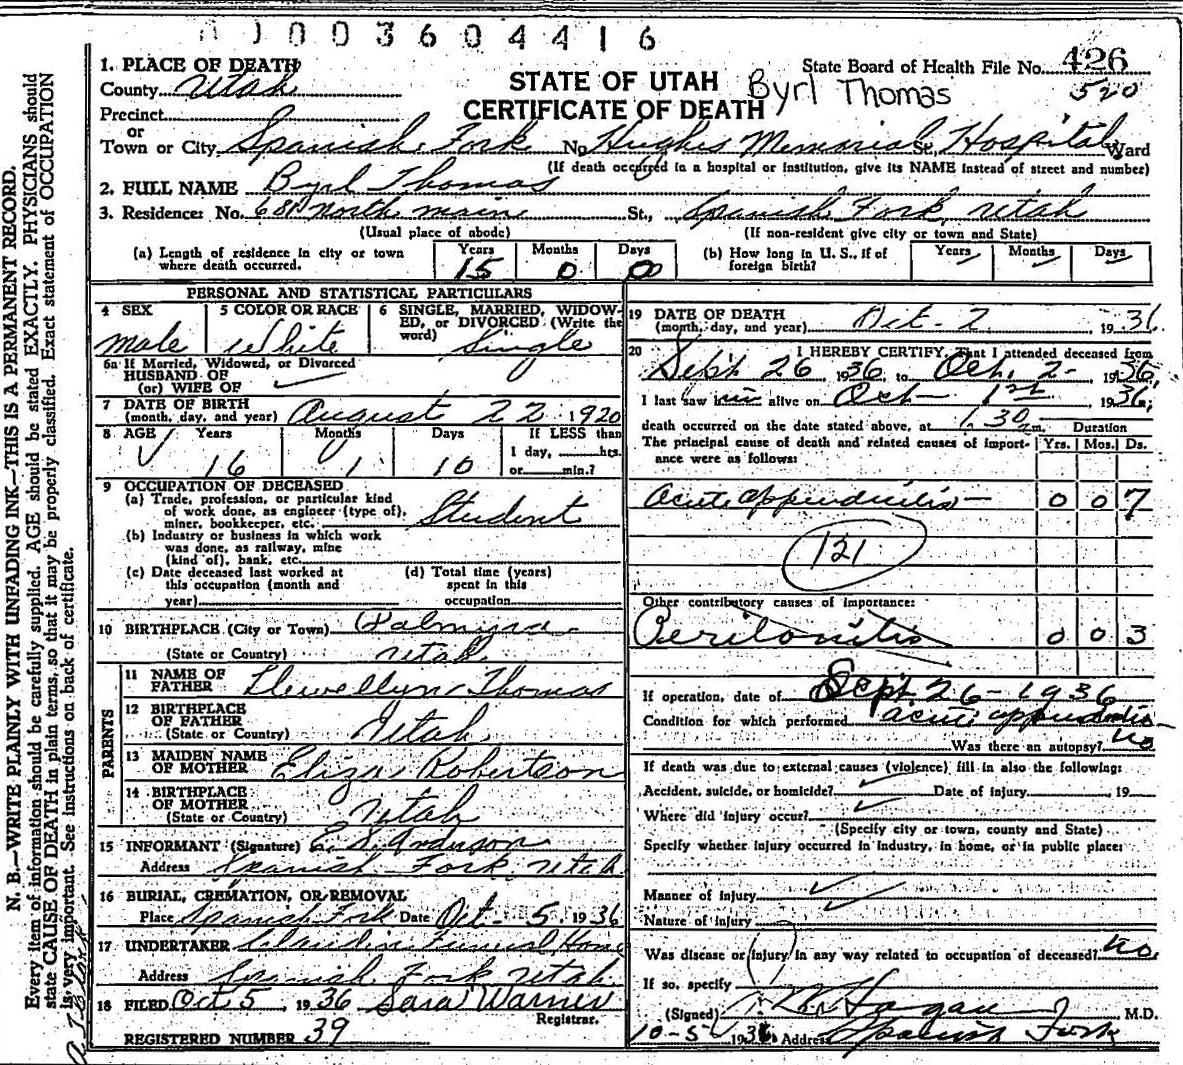 0 1 0 0 3 6 0 4 4 1 6
1. PLACE OF DEATH
County Utah
Precinct
or
Town or City Spanish Fork No. Hughes Memorial St. Hospital Ward
STATE OF UTAH
CERTIFICATE OF DEATH
Byrl Thomas
State Board of Health File No. 426
520
(If death occurred in a hospital or institution, give its NAME instead of street and number)
2. FULL NAME Byrl Thomas
3. Residence: No. 681 North maine St., Spanish Fork, utah
(Usual place of abode) (If non-resident give city or town and State)
(a) Length of residence in city or town where death occurred. Years 15 Months 0 Days 00
(b) How long in U. S., if of foreign birth? Years Months Days
PERSONAL AND STATISTICAL PARTICULARS
4 SEX male
5 COLOR OR RACE White
6 SINGLE, MARRIED, WIDOWED, or DIVORCED (Write the word) Single
6a If Married, Widowed, or Divorced
HUSBAND OF
(or) WIFE OF
7 DATE OF BIRTH
(month, day, and year) August 22 1920
8 AGE Years 16 Months 1 Days 10 If LESS than 1 day, hrs. or min.?
9 OCCUPATION OF DECEASED
(a) Trade, profession, or particular kind of work done, as engineer (type of), miner, bookkeeper, etc. Student
(b) Industry or business in which work was done, as railway, mine (kind of), bank, etc.
(c) Date deceased last worked at this occupation (month and year)
(d) Total time (years) spent in this occupation
10 BIRTHPLACE (City or Town) Palmyra
(State or Country) utah
PARENTS
11 NAME OF FATHER Llewellyn Thomas
12 BIRTHPLACE OF FATHER (State or Country) Utah
13 MAIDEN NAME OF MOTHER Eliza Robertson
14 BIRTHPLACE OF MOTHER (State or Country) Utah
15 INFORMANT (Signature) E. S. Anderson
Address Spanish Fork Utah
16 BURIAL, CREMATION, OR REMOVAL
Place Spanish Fork Date Oct 5, 1936
17 UNDERTAKER Claudin Funeral Home
Address Spanish Fork Utah
18 FILED Oct 5, 1936 Sara Warner
Registrar.
REGISTERED NUMBER 39
19 DATE OF DEATH
(month, day, and year) Oct - 2 1936
20 I HEREBY CERTIFY, That I attended deceased from
Sept 26 1936, to Oct. 2- 1936,
I last saw him alive on Oct 1st 1936;
death occurred on the date stated above, at 1:30 am. Duration
The principal cause of death and related causes of importance were as follows: Yrs. Mos. Ds.
Acute appendicitis 0 0 7
121
Other contributory causes of importance:
Peritonitis 0 0 3
If operation, date of Sept 26-1936
Condition for which performed acute appendicitis
Was there an autopsy? no
If death was due to external causes (violence) fill in also the following:
Accident, suicide, or homicide? Date of injury , 19
Where did injury occur?
(Specify city or town, county and State)
Specify whether injury occurred in industry, in home, or in public place:
Manner of injury
Nature of injury
Was disease or injury in any way related to occupation of deceased? no.
If so, specify
(Signed) Hagan M.D.
10-5 1936 Address Spanish Fork
N. B.—WRITE PLAINLY WITH UNFADING INK—THIS IS A PERMANENT RECORD.
Every item of information should be carefully supplied. AGE should be stated EXACTLY. PHYSICIANS should
state CAUSE OF DEATH in plain terms, so that it may be properly classified. Exact statement of OCCUPATION
is very important. See instructions on back of certificate.